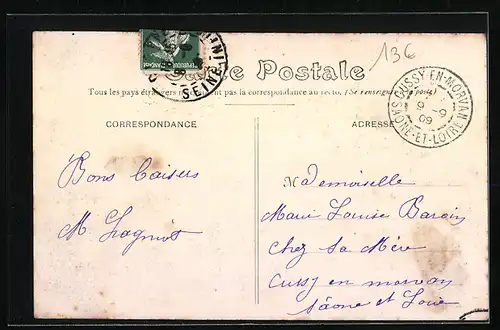 136
Carte Postale
Tous les pays étrangers n'acceptent pas la correspondance au recto. (Se renseigner à la poste)
CORRESPONDANCE
ADRESSE
CUSSY-EN-MORVAN
9 -9
09
SAONE-ET-LOIRE
SEINE
Bons baisers
Mademoiselle
Marie Louise Baroin
Chez Sa Mère
Cussy en morvan
Sâone et Loire